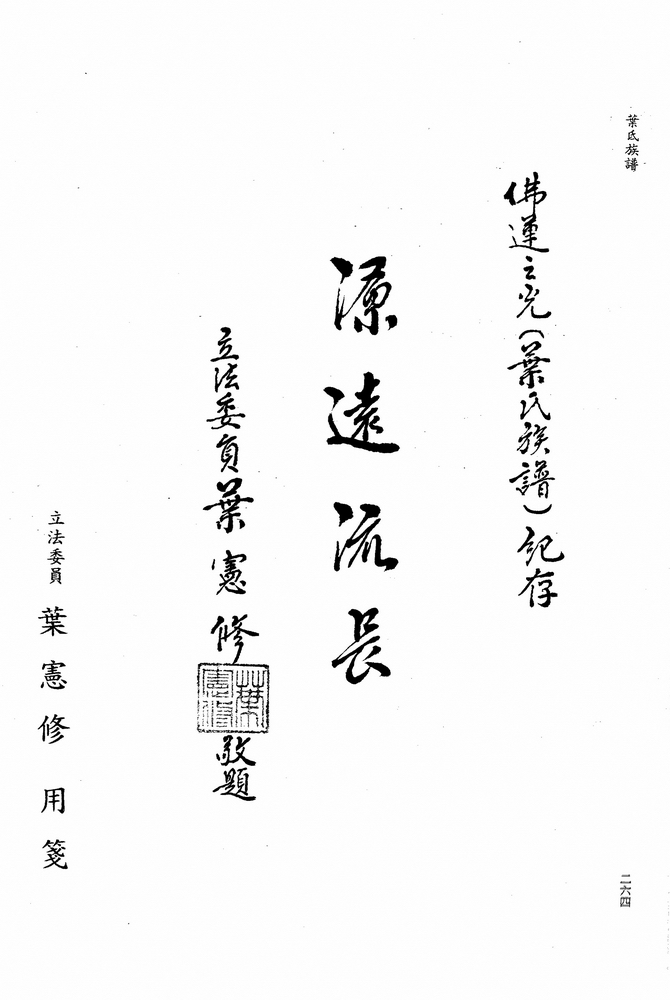 葉氏族譜
佛蓮之光(葉氏族譜)記存
源遠流長
立法委員葉憲修敬題
葉憲修
立法委員 葉憲修 用箋
二六四